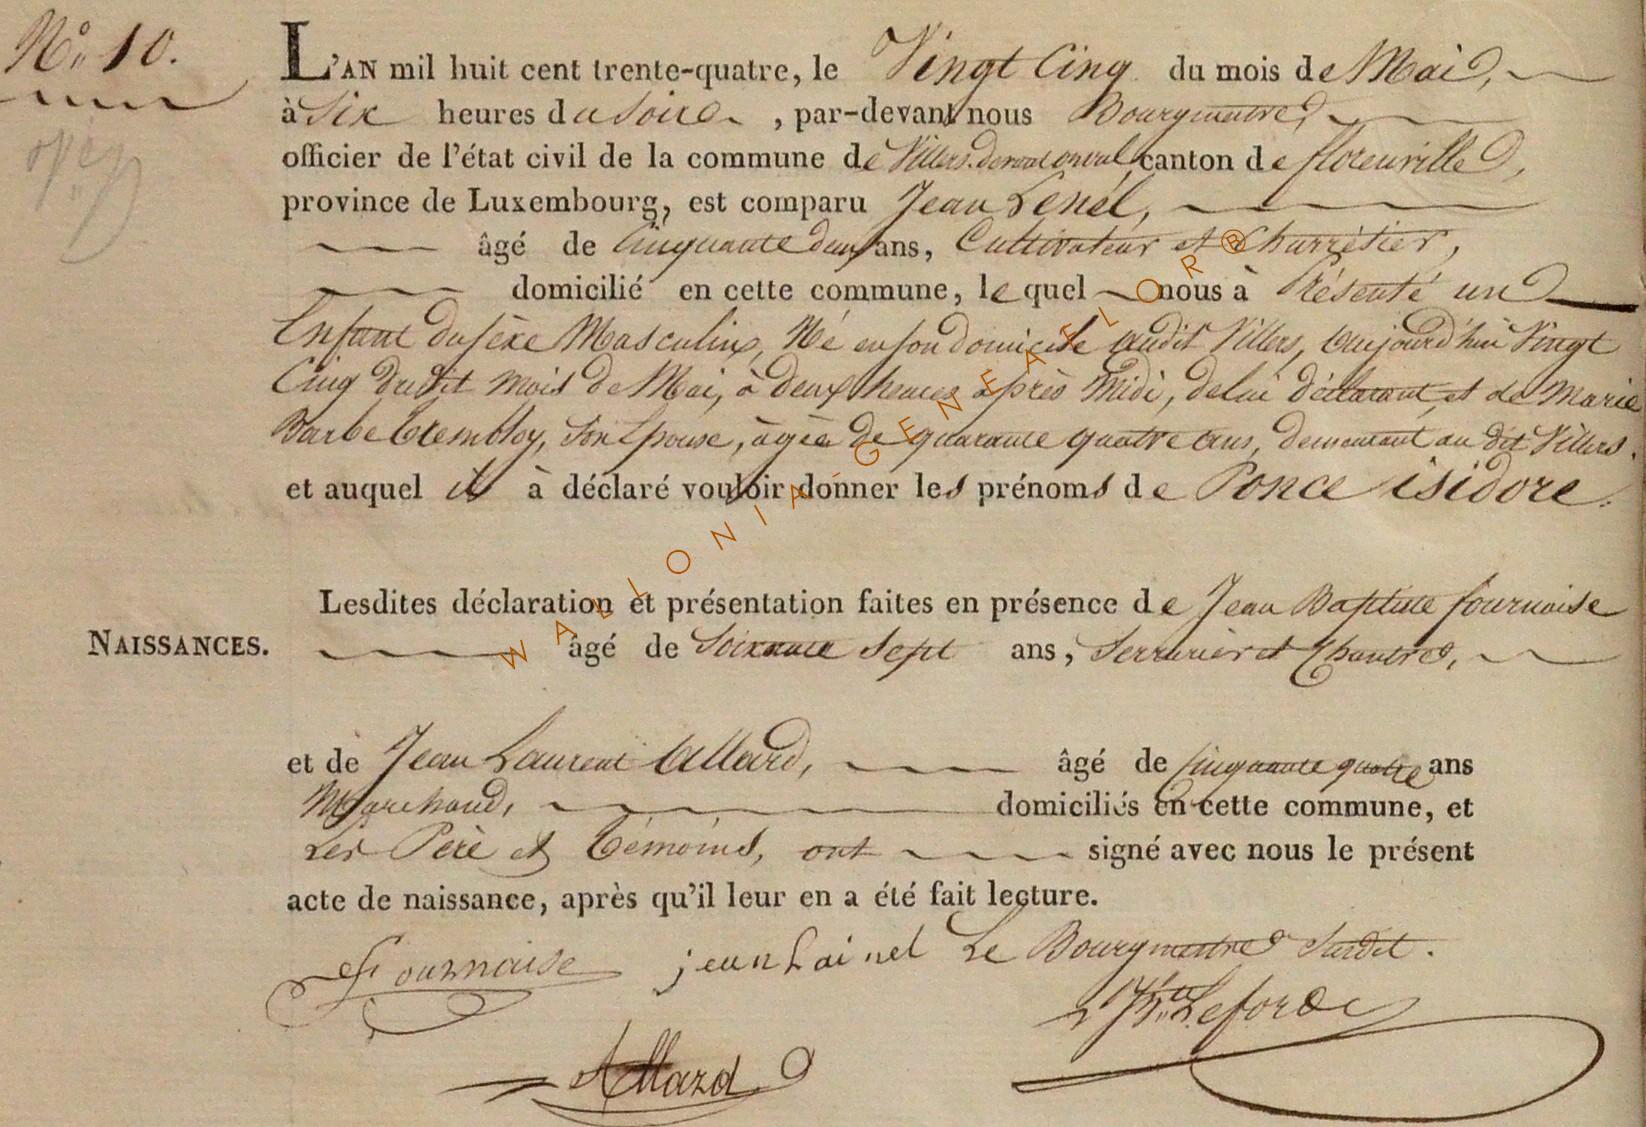 N° 10.
L'AN mil huit cent trente-quatre, le Vingt Cinq du mois de Mai,
à Six heures du Soir, par-devant nous Bourgmestre,
officier de l'état civil de la commune de Villers devant orval canton de florenville,
province de Luxembourg, est comparu Jean Lenel,
âgé de Cinquante deux ans, Cultivateur et Charretier,
domicilié en cette commune, lequel nous à Présenté un
Enfant du sèxe Masculin, Né en son domicile audit Villers, aujourd'hui Vingt
Cinq dudit mois de Mai, à deux heures après Midi, de lui déclarant et de Marie
Barbe, Son Epouse, âgée de quarante quatre ans, demeurant au dit Villers.
et auquel il à déclaré vouloir donner les prénoms de Ponce isidore.
Lesdites déclaration et présentation faites en présence de Jean Baptiste fournaise
NAISSANCES. âgé de Soixante Sept ans, Serrurier et Chantre,
et de Jean Laurent Allard, âgé de Cinquante quatre ans
Marchand, domiciliés en cette commune, et
Les Père et Témoins, ont signé avec nous le présent
acte de naissance, après qu'il leur en a été fait lecture.
Fournaise jean Lainel Le Bourgmestre Susdit.
Leforde
Allard
WALLONIA-GENEAFLOR®